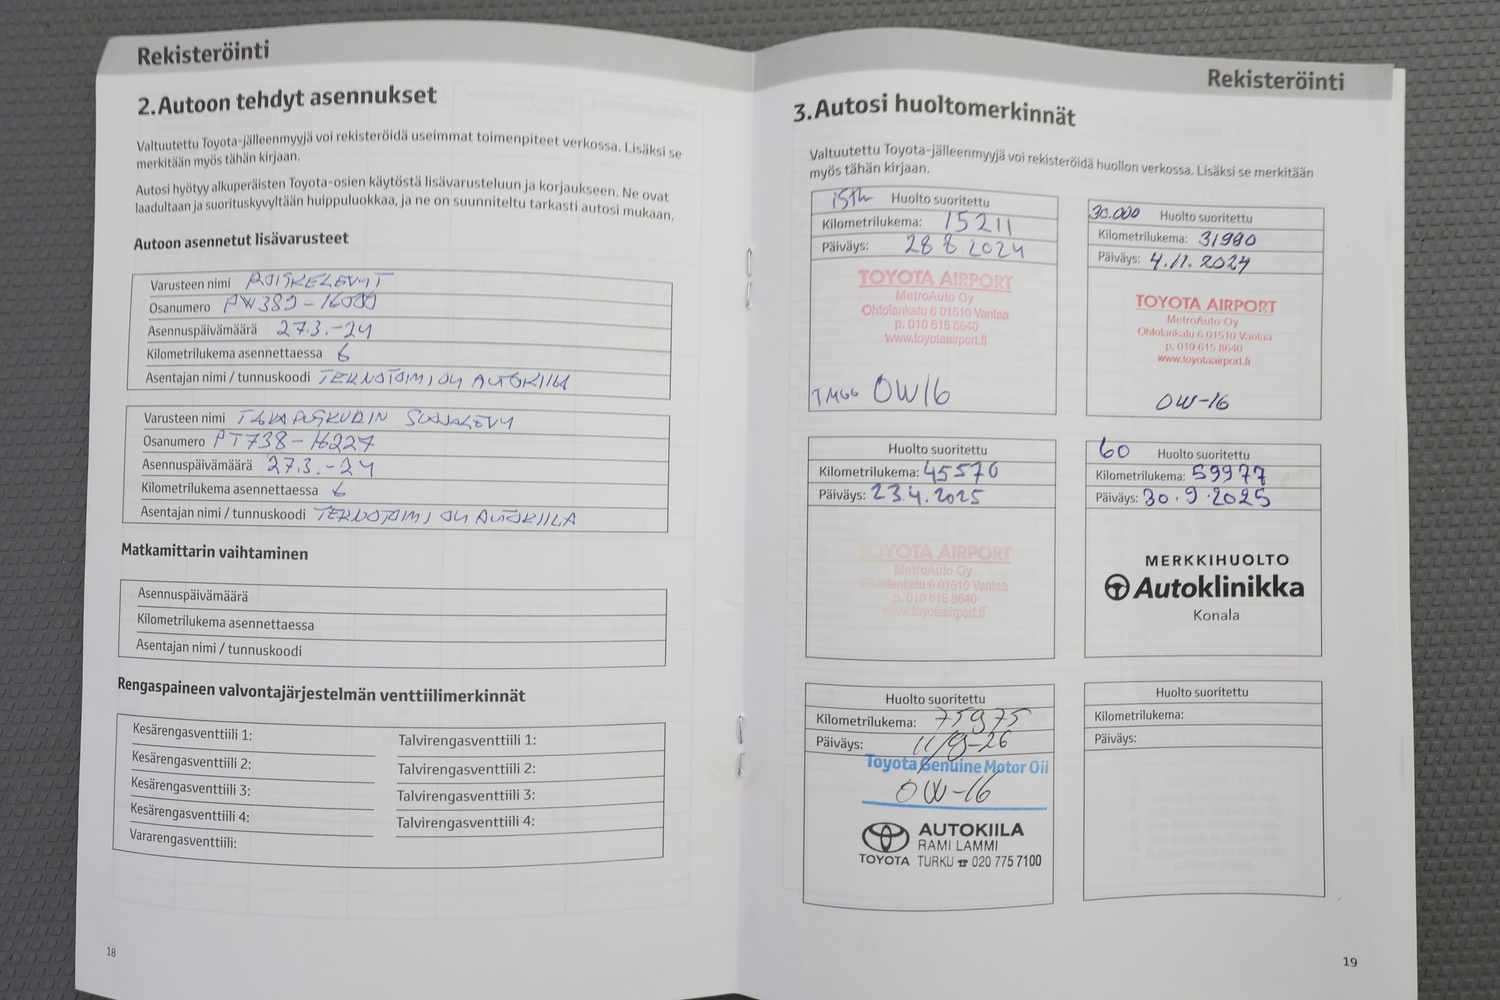 Rekisteröinti
2.Autoon tehdyt asennukset
Valtuutettu Toyota-jälleenmyyjä voi rekisteröidä useimmat toimenpiteet verkossa. Lisäksi se
merkitään myös tähän kirjaan.
Autosi hyötyy alkuperäisten Toyota-osien käytöstä lisävarusteluun ja korjaukseen. Ne ovat
laadultaan ja suorituskyvyltään huippuluokkaa, ja ne on suunniteltu tarkasti autosi mukaan.
Autoon asennetut lisävarusteet
Varusteen nimi ROISKELEVYT
Osanumero PW389-16000
Asennuspäivämäärä 27.3.-24
Kilometrilukema asennettaessa 6
Asentajan nimi / tunnuskoodi TEKNOTOIMI OY AUTOKIILA
Varusteen nimi TAKAPUSKURIN SUOJALEVY
Osanumero PT738-16227
Asennuspäivämäärä 27.3.-24
Kilometrilukema asennettaessa 6
Asentajan nimi / tunnuskoodi TEKNOTOIMI OY AUTOKIILA
Matkamittarin vaihtaminen
Asennuspäivämäärä
Kilometrilukema asennettaessa
Asentajan nimi / tunnuskoodi
Rengaspaineen valvontajärjestelmän venttiilimerkinnät
Kesärengasventtiili 1:
Talvirengasventtiili 1:
Kesärengasventtiili 2:
Talvirengasventtiili 2:
Kesärengasventtiili 3:
Talvirengasventtiili 3:
Kesärengasventtiili 4:
Talvirengasventtiili 4:
Vararengasventtiili:
18
Rekisteröinti
3.Autosi huoltomerkinnät
Valtuutettu Toyota-jälleenmyyjä voi rekisteröidä huollon verkossa. Lisäksi se merkitään
myös tähän kirjaan.
Huolto suoritettu
Kilometrilukema: 15211
Päiväys: 28.8.2024
TOYOTA AIRPORT
MetroAuto Oy
Ohtolankatu 6 01510 Vantaa
p. 010 615 8640
www.toyotaairport.fi
0W16
30.000 Huolto suoritettu
Kilometrilukema: 31990
Päiväys: 4.11.2024
TOYOTA AIRPORT
MetroAuto Oy
Ohtolankatu 6 01510 Vantaa
p. 010 615 8640
www.toyotaairport.fi
0W-16
Huolto suoritettu
Kilometrilukema: 45570
Päiväys: 23.4.2025
TOYOTA AIRPORT
MetroAuto Oy
Ohtolankatu 6 01510 Vantaa
p. 010 615 8640
www.toyotaairport.fi
60 Huolto suoritettu
Kilometrilukema: 59977
Päiväys: 30.9.2025
MERKKIHUOLTO
Autoklinikka
Konala
Huolto suoritettu
Kilometrilukema: 75975
Päiväys:
Toyota Genuine Motor Oil
0W-16
AUTOKIILA
RAMI LAMMI
TOYOTA TURKU ☎ 020 775 7100
Huolto suoritettu
Kilometrilukema:
Päiväys:
19